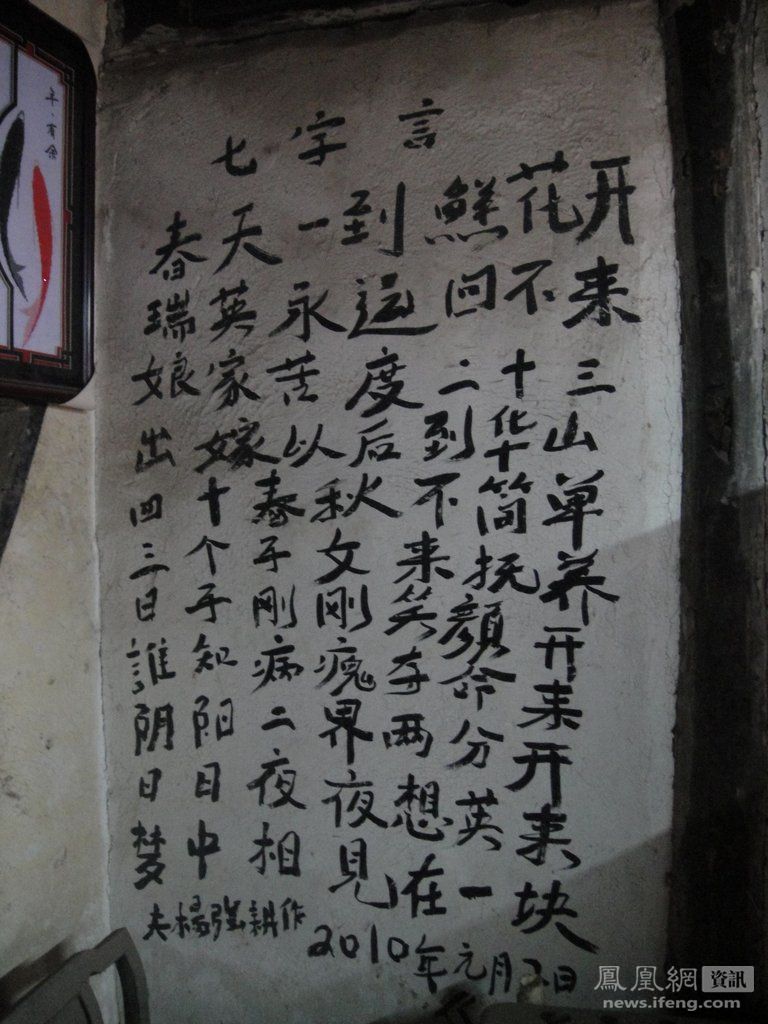 七字言
春天一到鲜花开
瑞英永远回不来
娘家苦度二十三
出嫁以后到华山
四十春秋不简单
三个子女来抚养
日子刚刚笑颜开
誰知病瘣夺命来
阴阳二界两分开
日日夜夜想英来
梦中相見在一块
夫杨强耕作
2010年元月2日
年有余
鳳凰網資訊
news.ifeng.com